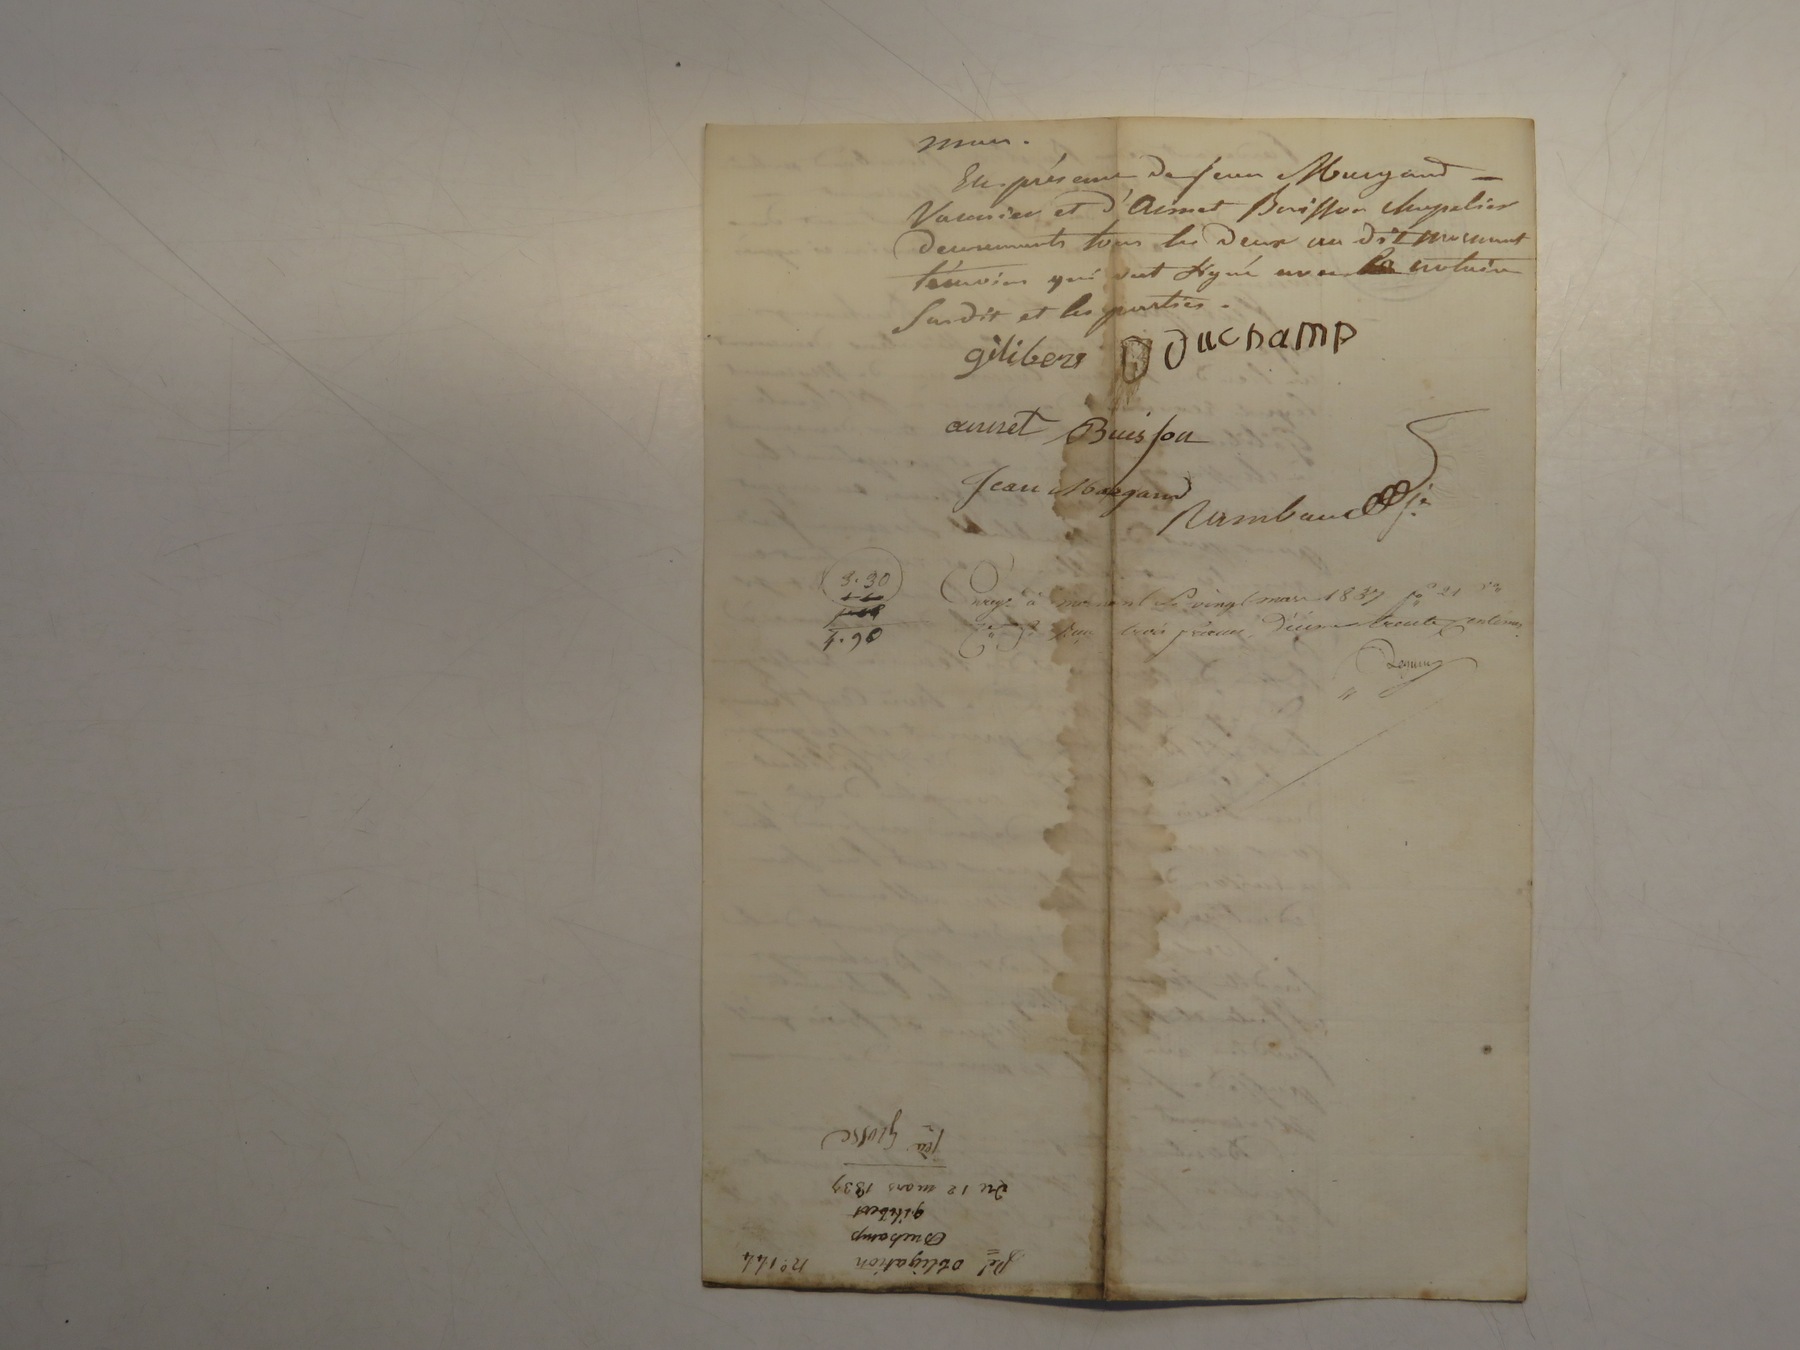 mars.
En présence de Jean Murgand
Vannier et d'Aimet Buisson chapelier
demeurants tous les deux au dit mornant
témoins qui ont signé avec le notaire
Susdit et les parties.
gilibert Duchamp
aimet Buisson
Jean Murgand
Rambaud
3.30
4.60
Enregé à mornant le vingt mars 1837 fo 21
trois francs, Décime trente Centimes
Pel obligation n° 144
Duchamp
gilibert
Du 12 mars 1837
1ère Grosse